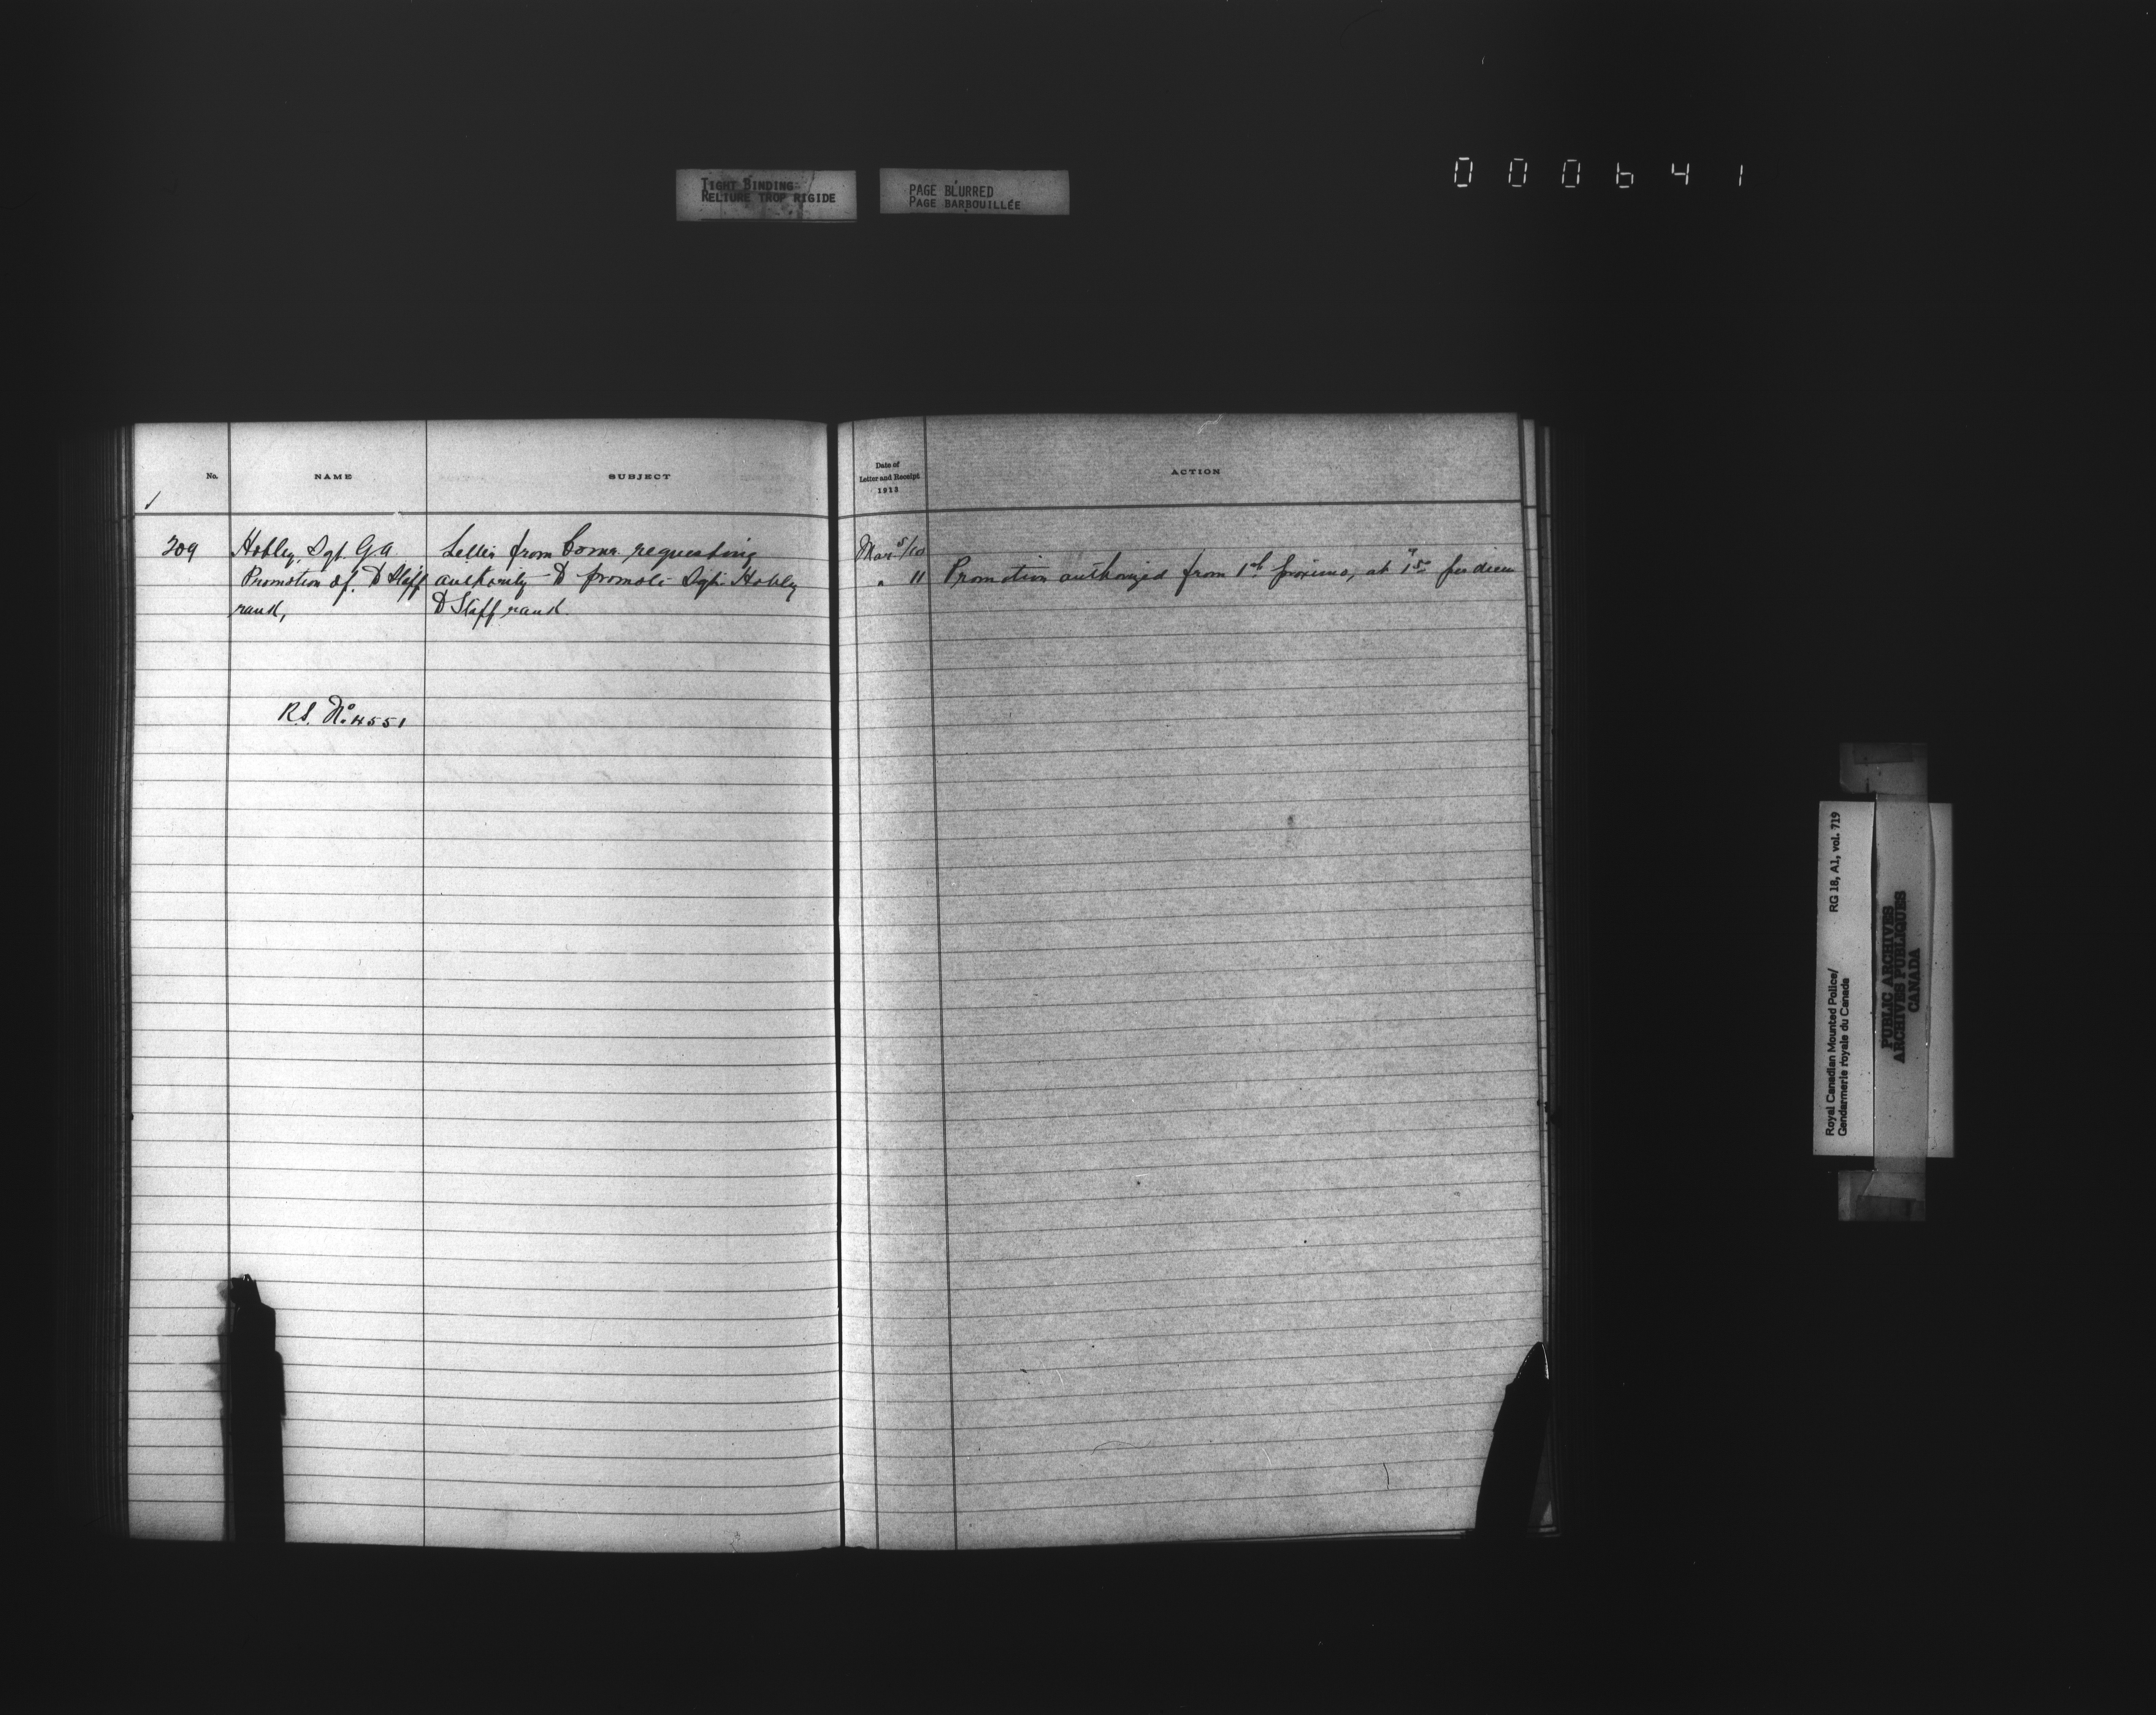 TIGHT BINDING
RELIURE TROP RIGIDE
PAGE BLURRED
PAGE BARBOUILLÉE
000641
No.
NAME
SUBJECT
309
Hobley, Sgt. G.A.
Promotion of, to Staff
rank,
R.S. No. 4551
Letter from Comr. requesting
authority to promote Sgt. Hobley
to Staff rank.
Date of
Letter and Receipt
1913
ACTION
Mar 5/10
" 11
Promotion authorized from 1st proximo, at 1.50 per diem
Royal Canadian Mounted Police/
Gendarmerie royale du Canada
RG 18, A1, vol. 719
PUBLIC ARCHIVES
ARCHIVES PUBLIQUES
CANADA